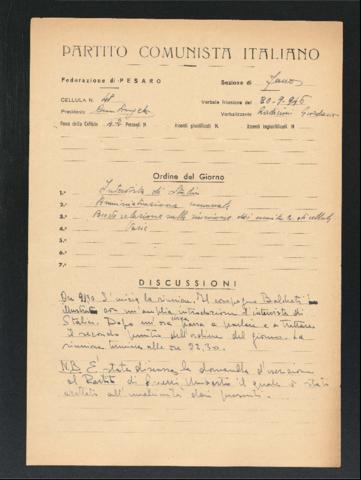 PARTITO COMUNISTA ITALIANO
Federazione di PESARO Sezione di Fano
CELLULA N. Verbale riunione del 20.9.946
Presidente Verbalizzante Giordano
Forza della Cellula Presenti N. Assenti giustificati N. Assenti ingiustificati N.
Ordine del Giorno
1.° Intervista di Stalin
2.° Amministrazione comunale
3.° Breve relazione sulla riunione dei comitati di cellula
4.° Varie
5.°
6.°
7.°
DISCUSSIONI
Ore 9,30 S'inizia la riunione. Il compagno
illustra con un'ampia introduzione l'intervista di
Stalin. Dopo un'ora passa a parlare e a trattare
il secondo punto dell'ordine del giorno. La
riunione termina alle ore 22,30.
N.B. E' stata discussa la domanda d'iscrizione
al Partito di Umberto il quale è stato
accettato all'unanimità dai presenti.